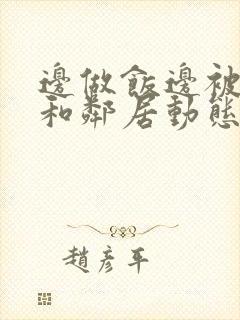 邊做飯邊被
和鄰居動態
趙彥平